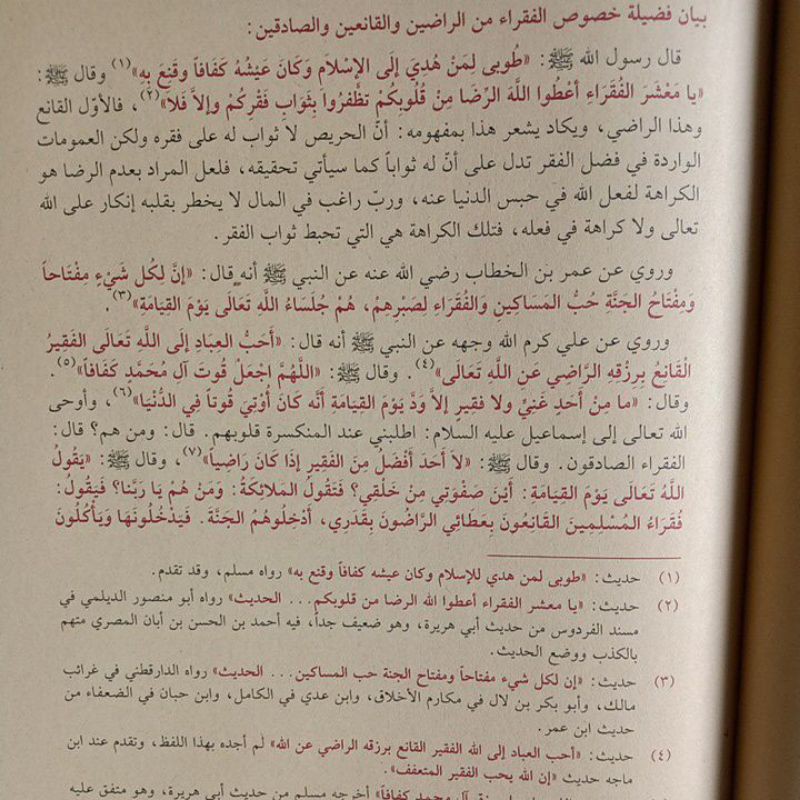 بيان فضيلة خصوص الفقراء من الراضين والقانعين والصادقين:
قال رسول الله ﷺ: «طُوبى لِمَنْ هُدِيَ إلَى الإسْلاَمِ وَكَانَ عَيْشُهُ كَفَافاً وقَنِعَ بِهِ»(١) وقال ﷺ:
«يا مَعْشَرَ الفُقَرَاءِ أعْطُوا اللَّهَ الرِّضَا مِنْ قُلُوبِكُمْ تظْفَرُوا بِثَوَابِ فَقْرِكُمْ وإلاَّ فَلاَ»(٢)، فالأوّل القانع
وهذا الراضي، ويكاد يشعر هذا بمفهومه: أنّ الحريص لا ثواب له على فقره ولكن العمومات
الواردة في فضل الفقر تدل على أنّ له ثواباً كما سيأتي تحقيقه، فلعل المراد بعدم الرضا هو
الكراهة لفعل الله في حبس الدنيا عنه، وربّ راغب في المال لا يخطر بقلبه إنكار على الله
تعالى ولا كراهة في فعله، فتلك الكراهة هي التي تحبط ثواب الفقر.
وروي عن عمر بن الخطاب رضي الله عنه عن النبي ﷺ أنه قال: «إنَّ لِكُل شَيْءٍ مِفْتَاحاً
وَمِفْتَاحُ الجَنَّةِ حُبُّ المَسَاكِينِ وَالفُقَرَاءِ لِصَبْرِهِمْ، هُمْ جُلَسَاءُ اللَّهِ تَعَالَى يَوْمَ القِيَامَةِ»(٣).
وروي عن علي كرم الله وجهه عن النبي ﷺ أنه قال: «أَحَبُّ العِبَادِ إلَى اللَّهِ تَعَالَى الفَقِيرُ
القَانِعُ بِرِزْقِهِ الرَّاضِي عَنِ اللَّهِ تَعَالَى»(٤). وقال ﷺ: «اللَّهُمَّ اجْعَلْ قُوتَ آلِ مُحَمَّدٍ كَفَافاً»(٥).
وقال: «ما مِنْ أحَدٍ غَنِيٍّ ولا فقيرٍ إلاَّ وَدَّ يَوْمَ القِيَامَةِ أنَّه كَانَ أُوْتِيَ قُوتاً فِي الدُّنْيَا»(٦)، وأوحى
الله تعالى إلى إسماعيل عليه السلام: اطلبني عند المنكسرة قلوبهم. قال: ومن هم؟ قال:
الفقراء الصادقون. وقال ﷺ: «لاَ أحَدَ أفْضَلُ مِنَ الفَقِيرِ إذَا كَانَ رَاضِياً»(٧)، وقال ﷺ: «يَقُولُ
اللَّهُ تَعَالَى يَوْمَ القِيَامَةِ: أيْنَ صَفْوَتِي مِنْ خَلْقِي؟ فَتَقُولُ المَلاَئِكَةُ: وَمَنْ هُمْ يَا رَبَّنا؟ فَيَقُولُ:
فُقَرَاءُ المُسْلِمِينَ القَانِعُونَ بِعَطَائِي الرَّاضُونَ بِقَدَرِي، أدْخِلُوهُمُ الجَنَّةَ. فَيَدْخُلُونَهَا وَيَأْكُلُونَ
(١) حديث: «طوبى لمن هدي للإسلام وكان عيشه كفافاً وقنع به» رواه مسلم، وقد تقدم.
(٢) حديث: «يا معشر الفقراء أعطوا الله الرضا من قلوبكم... الحديث» رواه أبو منصور الديلمي في
مسند الفردوس من حديث أبي هريرة، وهو ضعيف جداً، فيه أحمد بن الحسن بن أبان المصري متهم
بالكذب ووضع الحديث.
(٣) حديث: «إن لكل شيء مفتاحاً ومفتاح الجنة حب المساكين... الحديث» رواه الدارقطني في غرائب
مالك، وأبو بكر بن لال في مكارم الأخلاق، وابن عدي في الكامل، وابن حبان في الضعفاء من
حديث ابن عمر.
(٤) حديث: «أحب العباد إلى الله الفقير القانع برزقه الراضي عن الله» لم أجده بهذا اللفظ، وتقدم عند ابن
ماجه حديث «إن الله يحب الفقير المتعفف».
آل محمد كفافاً» أخرجه مسلم من حديث أبي هريرة، وهو متفق عليه